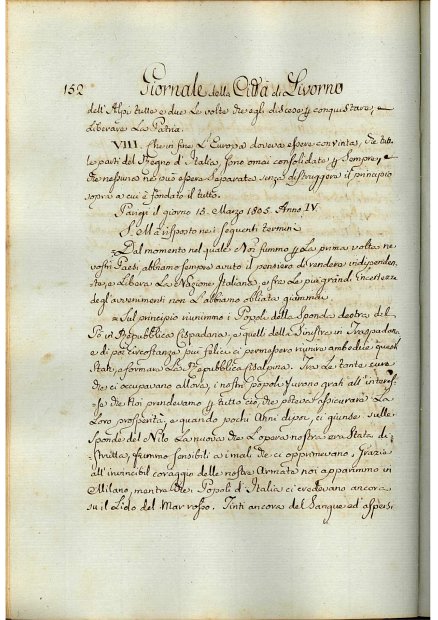 152 Giornale della Città di Livorno
dell'Alpi tutte e due le volte che egli discese p conquistare, e
Liberare La Patria.
VIII. Che in fine L'Europa doveva essere convinta, che tutte
le parti del Regno d'Italia, sono omai consolidate p sempre, e
che nessuna ne può essere separata senza distruggere il principio
sopra a cui è fondato il tutto.
Parigi il giorno 15. Marzo 1805. Anno IV.
S. M. à risposto nei seguenti termini
Dal momento nel quale Noi fummo p La prima volta ne
vostri Paesi, abbiamo sempre avuto il pensiero di rendere indipenden-
te, e Libera La Nazione Italiana, e fra Le più grandi incertezze
degl'avvenimenti non L'abbiamo obliata giammai.
Sul principio riunimmo i Popoli della Sponda destra del
Pò in Repubblica Cispadana, e quelli della Sinistra in Traspadana
e di poi circostanze più felici ci permessero riunire ambedue questi
Stati, e formare La Repubblica Cisalpina. Tra Le tante cure
che ci occupavano allora, i nostri popoli furono grati all'interes-
se che Noi prendevamo p tutto ciò, che poteva assicurare La
Loro prosperità, e quando pochi Anni di poi, ci giunse sulle
sponde del Nilo La nuova che L'opera nostra era stata di-
strutta, fummo sensibili a i mali che ci opprimevano. Grazie
all'invincibil coraggio delle nostre Armate noi apparimmo in
Milano, mentre che i Popoli d'Italia ci credevano ancora
su il Lido del Mar rosso. Tinti ancora del Sangue ed aspersi